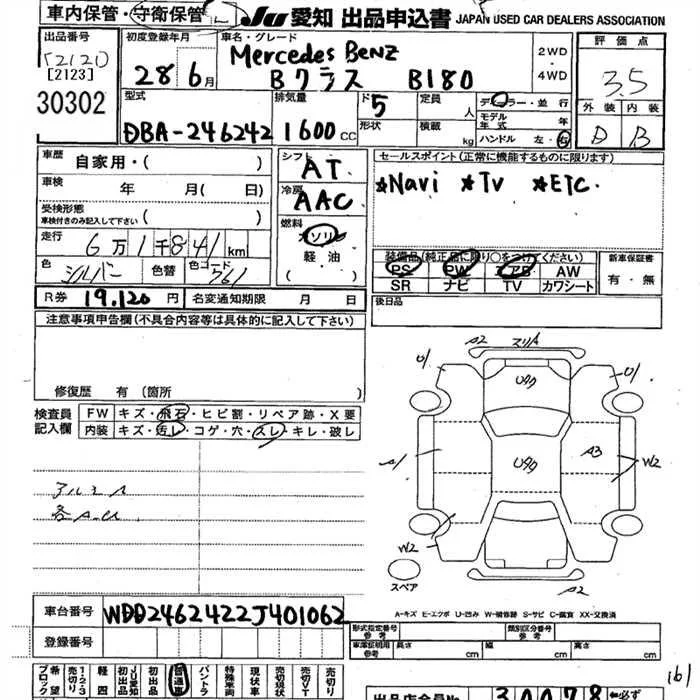 車内保管・守衛保管
JU 愛知 出品申込書 JAPAN USED CAR DEALERS ASSOCIATION
出品番号
[2120]
[2123]
30302
初度登録年月
28年6月
車名・グレード
Mercedes Benz
Bクラス B180
2WD
・
4WD
評価点
3.5
外装 内装
D B
型式
DBA-246242
排気量
1600cc
ド5
形状
定員 人
積載 kg
ディーラー・並行
モデル年式 年
ハンドル 左・右
車歴 自家用・( )
車検 年 月( 日)
受検形態
車検付きのみ記入して下さい ( )
走行 6万1千841km
色 シルバー 色替 色コード 761
シフト AT
冷房 AAC
燃料
ガソリン
・
軽・油
セールスポイント(正常に機能するものに限ります)
★Navi ★TV ★ETC.
装備品(純正品に限り○をつけてください)
PS PW AB AW
SR ナビ TV カワシート
新車保証書
有・無
後日品
R券 19,120円 名変通知期限 月 日
注意事項申告欄(不具合内容等は具体的に記入して下さい)
修復歴 有(箇所 )
検査員記入欄
FW キズ・飛石・ヒビ割・リペア跡・X要
内装 キズ・汚レ・コゲ・穴・スレ・キレ・破レ
アルミ
各A.U
A2
U1
U1
Uタタ
A1
Uタタ
A3
W2
W2
A2
スペア
A-キズ E-エクボ U-凹み W-補修跡 S-サビ C-腐食 XX-交換済
車台番号 WDD2462422J401062
登録番号
形式指定番号 参考
類別区分番号 参考
車庫証明用 参考 長さ cm 幅 cm 高さ cm
161
希望ブロック
売切り 1・2・3
軽四
JU愛知初出品
初出品
普通車
バントラ
特殊車両
現状車
売切現状
売切りT
売切り
出品店会員No